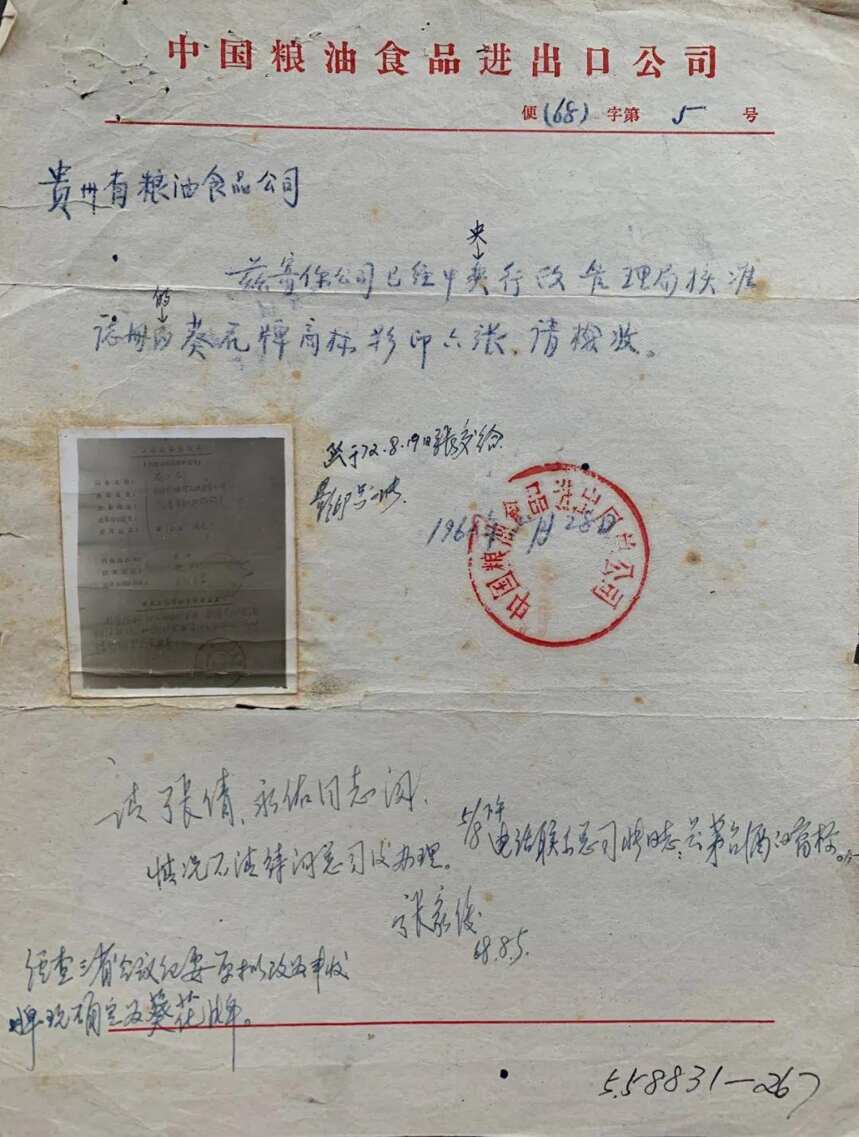 中国粮油食品进出口公司
便(68)字第 5 号
贵州省粮油食品公司
央
兹寄你公司已经中央行政管理局核准
的
註册的葵花牌商标影印六张,请检收。
于72.8.19日张交给
196 年 月28日
中国粮油食品进出口总公司
请张倩、永佑同志阅,
情况不清待询总司后办理。
5/8下午
电话联系总司 同志:云茅台酒的商标。
张家俊
68.8.5.
经查三省会议纪要原拟改为丰收
牌现确定为葵花牌。
5.58831—267